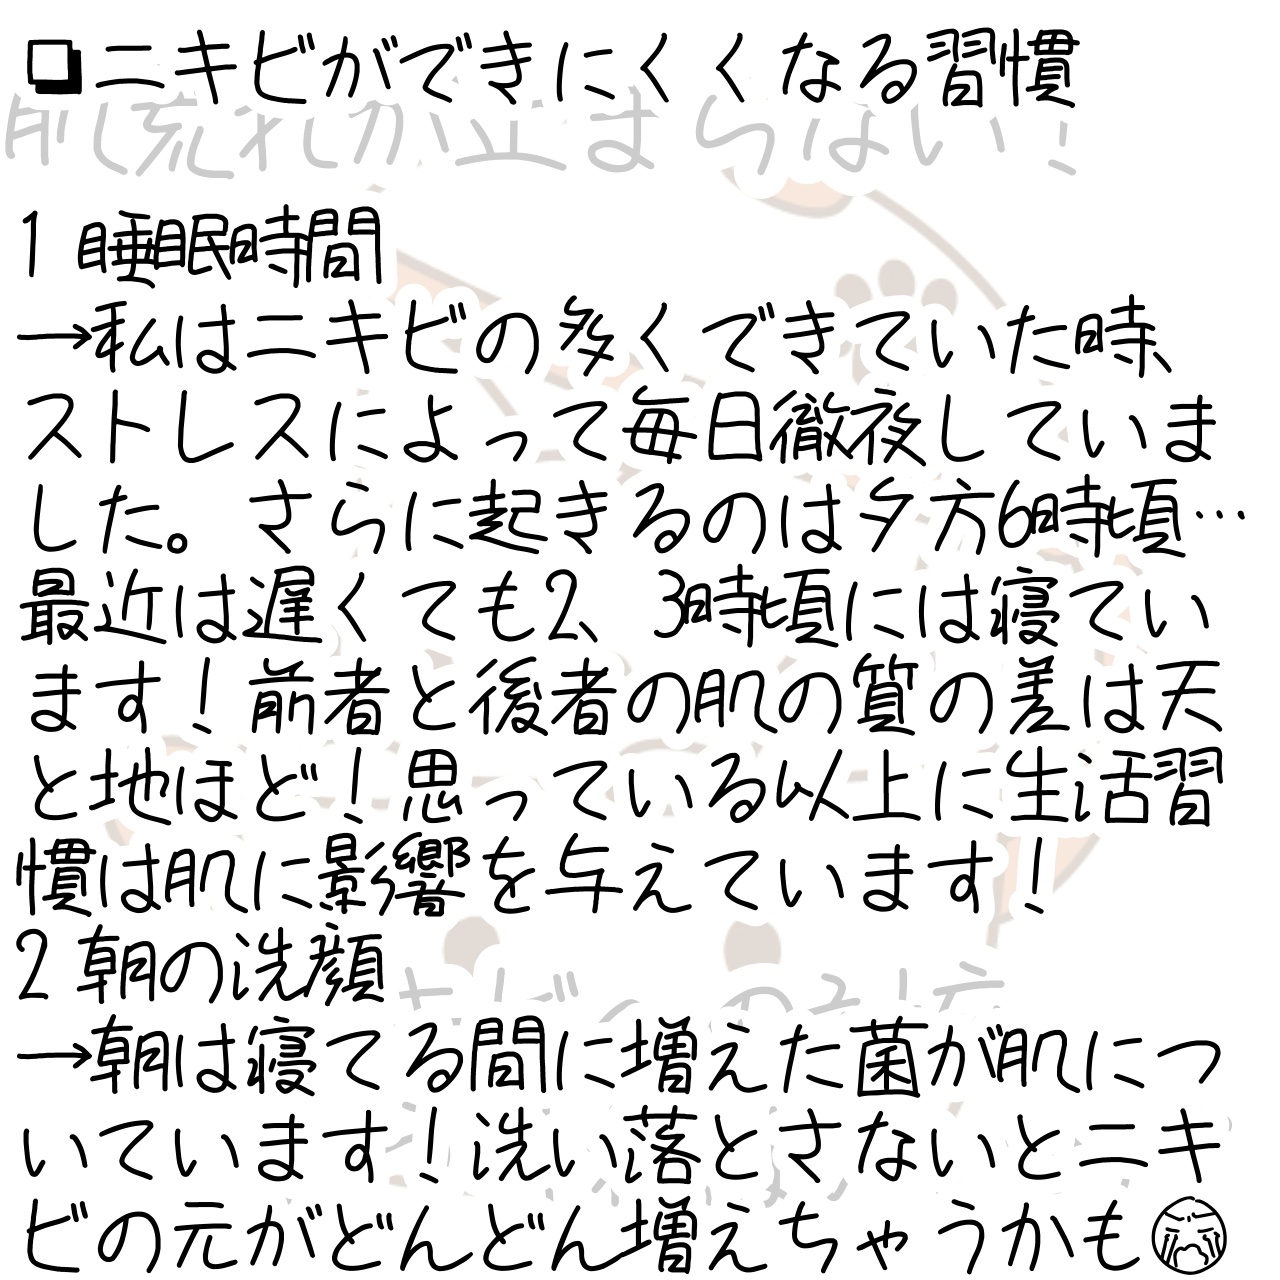 ❏ニキビができにくくなる習慣
肌荒れが止まらない！
1 睡眠時間
→私はニキビの多くできていた時、
ストレスによって毎日徹夜していま
した。さらに起きるのは夕方6時頃…
最近は遅くても2、3時頃には寝てい
ます！前者と後者の肌の質の差は天
と地ほど！思っている以上に生活習
慣は肌に影響を与えています！
2 朝の洗顔
→朝は寝てる間に増えた菌が肌につ
いています！洗い落とさないとニキ
ビの元がどんどん増えちゃうかも😭